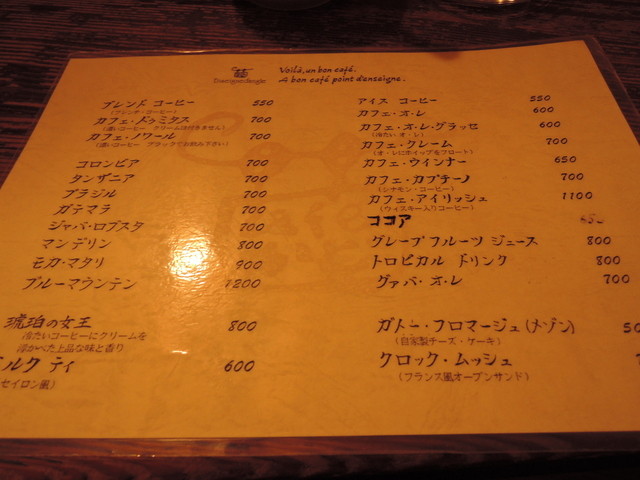 Voilà, un bon café.
A bon café point d'enseigne.
ブレンド コーヒー 550
(フレンチ・コーヒー)
カフェ・ドゥミタス 700
(濃いコーヒー クリームは付きません)
カフェ・ノワール 700
(濃いコーヒー ブラックでお飲み下さい)
コロンビア 700
タンザニア 700
ブラジル 700
ガテマラ 700
ジャバ・ロブスタ 700
マンデリン 800
モカ・マタリ 900
ブルーマウンテン 1200
琥珀の女王 800
冷たいコーヒーにクリームを
浮かべた上品な味と香り
ルク ティ 600
セイロン風)
アイス コーヒー 550
カフェ・オ・レ 600
カフェ・オ・レ・グラッセ 600
(冷たい オ・レ)
カフェ・クレーム 700
(オ・レにホイップをフロート)
カフェ・ウインナー 650
カフェ・カプチーノ 700
(シナモン・コーヒー)
カフェ・アイリッシュ 1100
(ウィスキー入りコーヒー)
ココア
グレープフルーツ ジュース 800
トロピカル ドリンク 800
グァバ・オ・レ 700
ガトー・フロマージュ(メゾン)
(自家製チーズ・ケーキ)
クロック・ムッシュ
(フランス風オープンサンド)